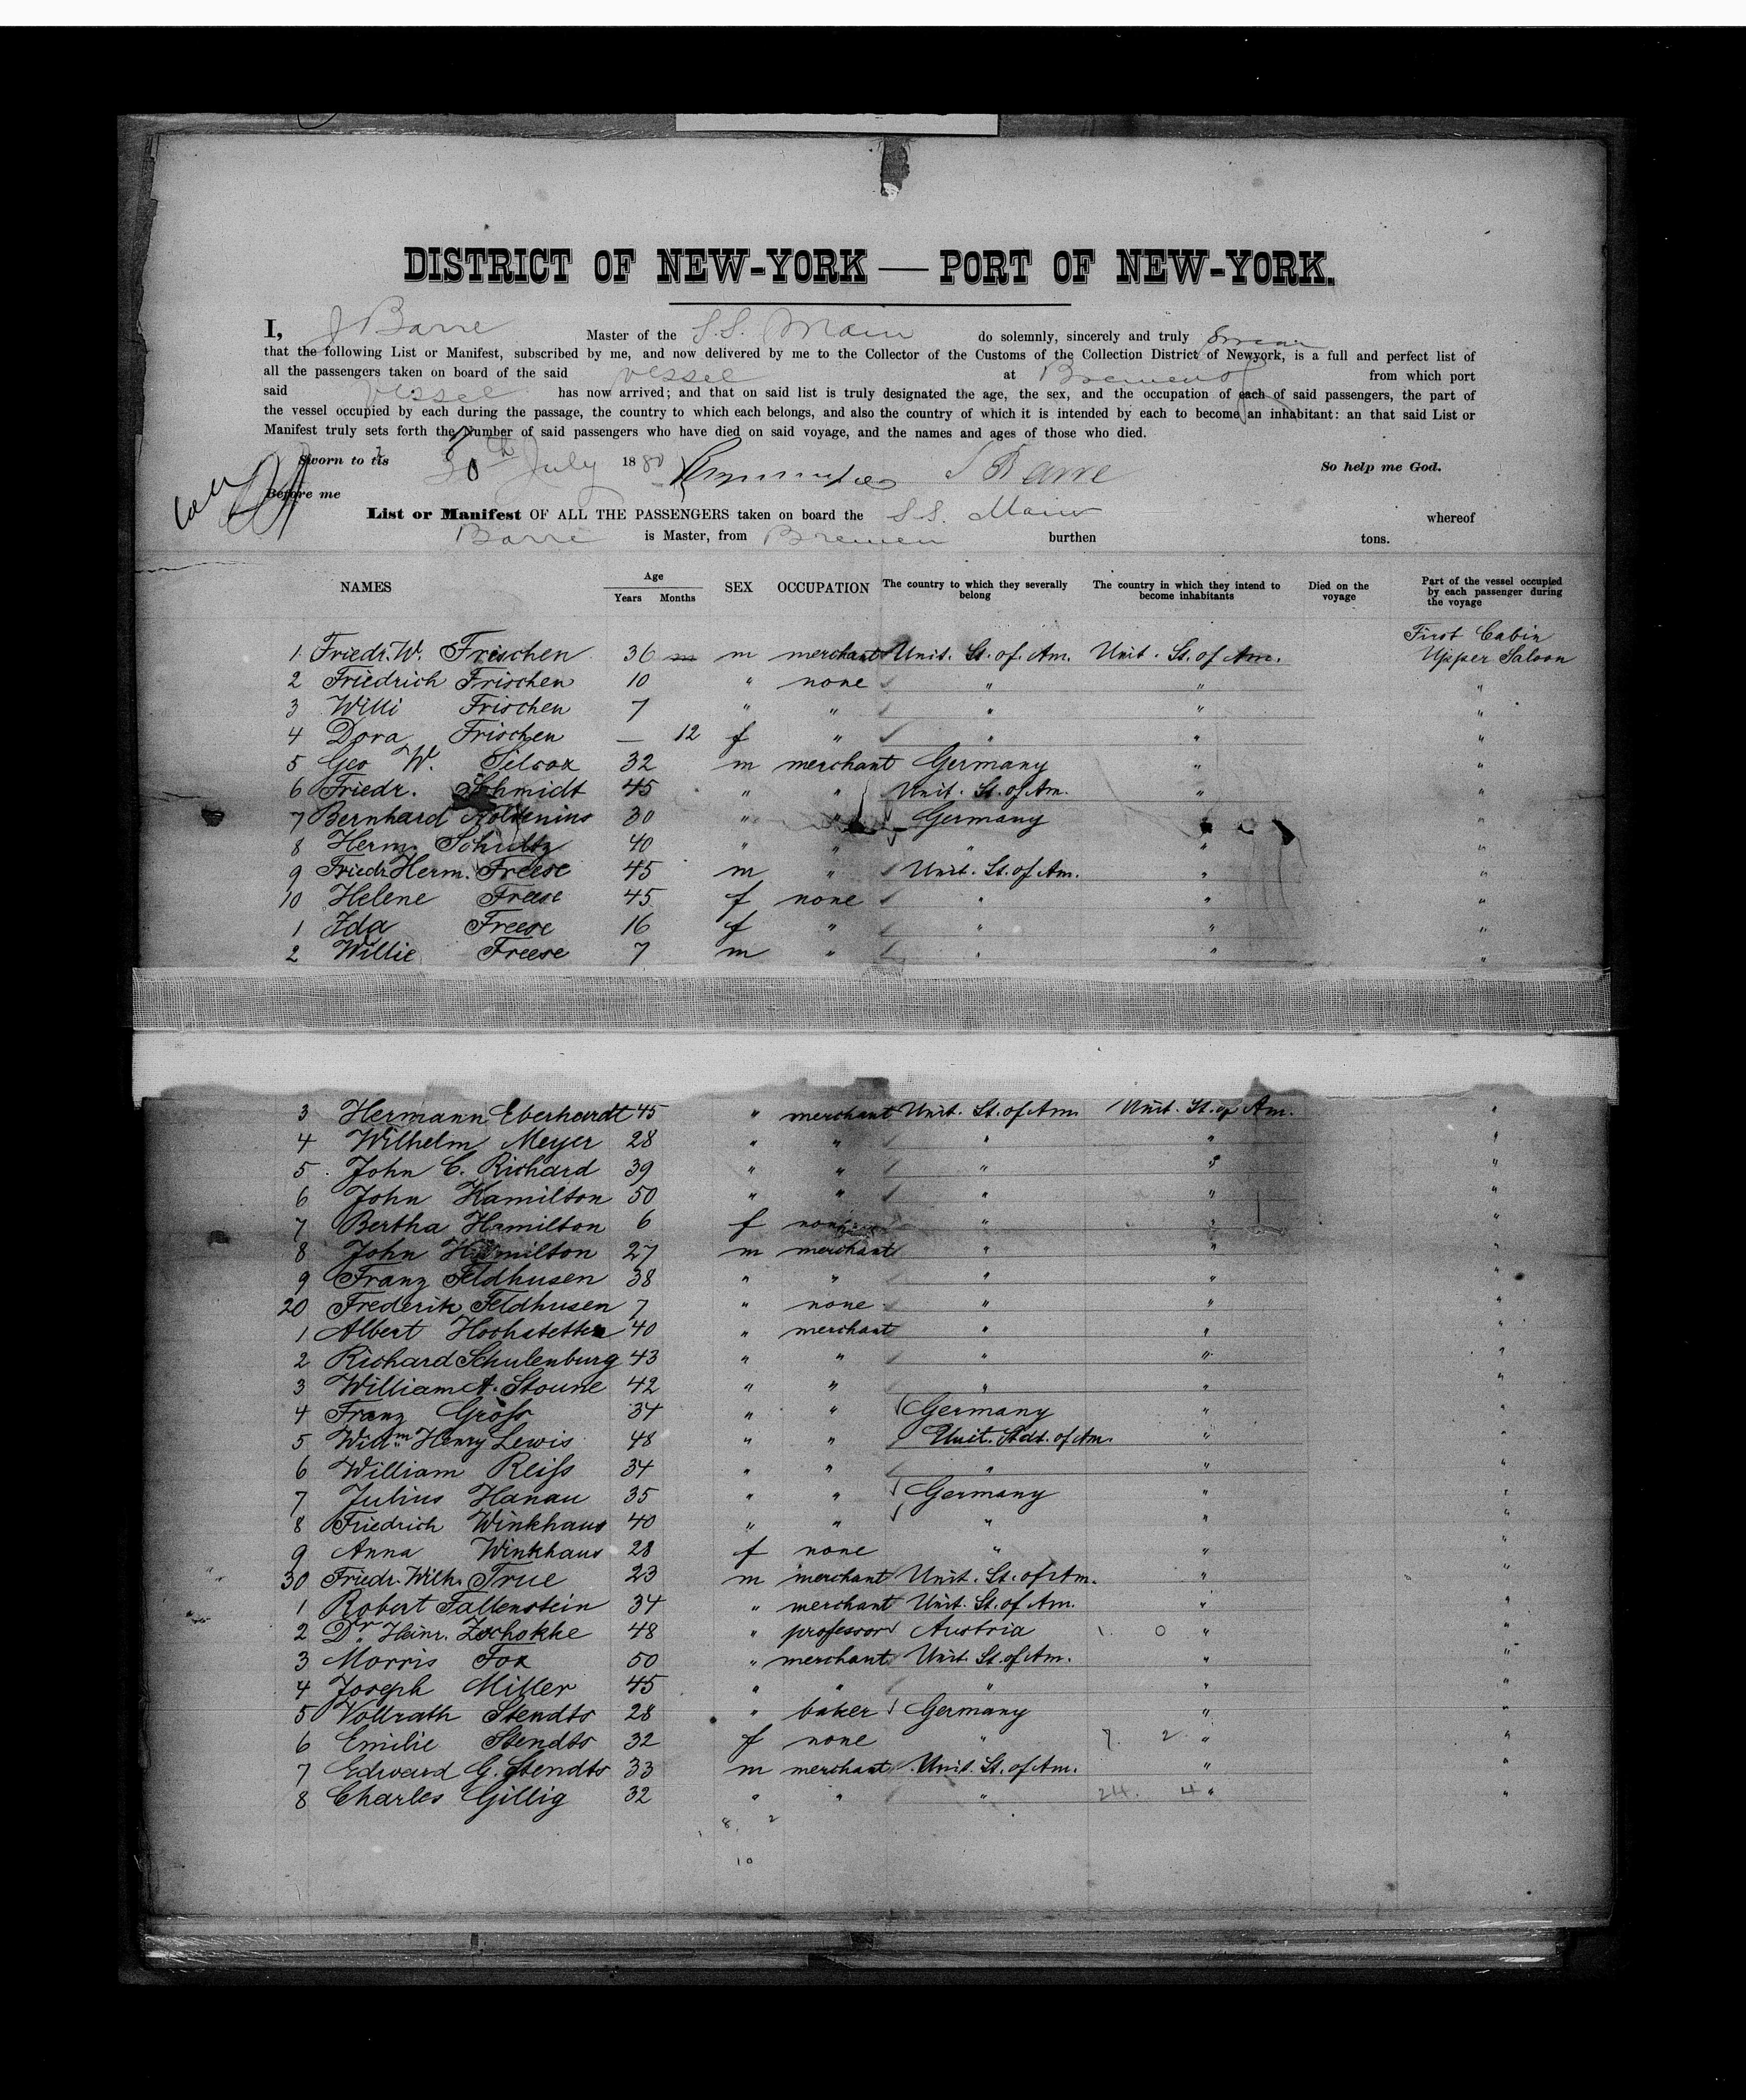 DISTRICT OF NEW-YORK — PORT OF NEW-YORK.
I, J Barre Master of the S.S. Main do solemnly, sincerely and truly swear
that the following List or Manifest, subscribed by me, and now delivered by me to the Collector of the Customs of the Collection District of Newyork, is a full and perfect list of
all the passengers taken on board of the said vessel at Bremen from which port
said vessel has now arrived; and that on said list is truly designated the age, the sex, and the occupation of each of said passengers, the part of
the vessel occupied by each during the passage, the country to which each belongs, and also the country of which it is intended by each to become an inhabitant: an that said List or
Manifest truly sets forth the Number of said passengers who have died on said voyage, and the names and ages of those who died.
Sworn to tis 30th July 1880 J Barre So help me God.
Before me
List or Manifest OF ALL THE PASSENGERS taken on board the S.S. Main whereof
Barre is Master, from Bremen burthen tons.
NAMES Age Years Months SEX OCCUPATION The country to which they severally belong The country in which they intend to become inhabitants Died on the voyage Part of the vessel occupied by each passenger during the voyage
First Cabin
1 Friedr. W. Frischen 36 m m merchant Unit. St. of. Am. Unit. St. of Am. Upper Saloon
2 Friedrich Frischen 10 " none " " "
3 Willi Frischen 7 " " " " "
4 Dora Frischen — 12 f " " " "
5 Geo W. Silcox 32 m merchant Germany " "
6 Friedr. Schmidt 45 " " Unit. St. of Am. " "
7 Bernhard 30 " " Germany " "
8 Herm. Schultz 40 " " " " "
9 Friedr Herm. Freese 45 m " Unit. St. of Am. " "
10 Helene Freese 45 f none " " "
1 Ida Freese 16 f " " " "
2 Willie Freese 7 m " " " "
3 Hermann Eberhardt 45 " merchant Unit. St. of Am. Unit. St. of Am. "
4 Wilhelm Meyer 28 " " " " "
5 John C. Richard 39 " " " " "
6 John Hamilton 50 " " " " "
7 Bertha Hamilton 6 f none " " "
8 John Hamilton 27 m merchant " " "
9 Franz Feldhusen 38 " " " " "
20 Frederik Feldhusen 7 " none " " "
1 Albert Hochstetter 40 " merchant " " "
2 Richard Schulenburg 43 " " " " "
3 William A. Stoune 42 " " " " "
4 Franz Groß 34 " " Germany " "
5 Willm Henry Lewis 48 " " Unit. Stat. of Am. " "
6 William Reiß 34 " " " " "
7 Julius Hanau 35 " " Germany " "
8 Friedrich Winkhaus 40 " " " " "
9 Anna Winkhaus 28 f none " " "
30 Friedr. Wilh. True 23 m merchant Unit. St. of Am. " "
1 Robert Fallenstein 34 " merchant Unit. St. of Am. " "
2 Dr. Heinr. Zschokke 48 " professor Austria 1. 0 " "
3 Morris Fox 50 " merchant Unit. St. of Am. " "
4 Joseph Miller 45 " " " " "
5 Vollrath Stendts 28 " baker Germany " "
6 Emilie Stendts 32 f none " 7. 2. " "
7 Edward G. Stendts 33 m merchant Unit. St. of Am. " "
8 Charles Gillig 32 " " " 24. 4 " "
8. 2
10